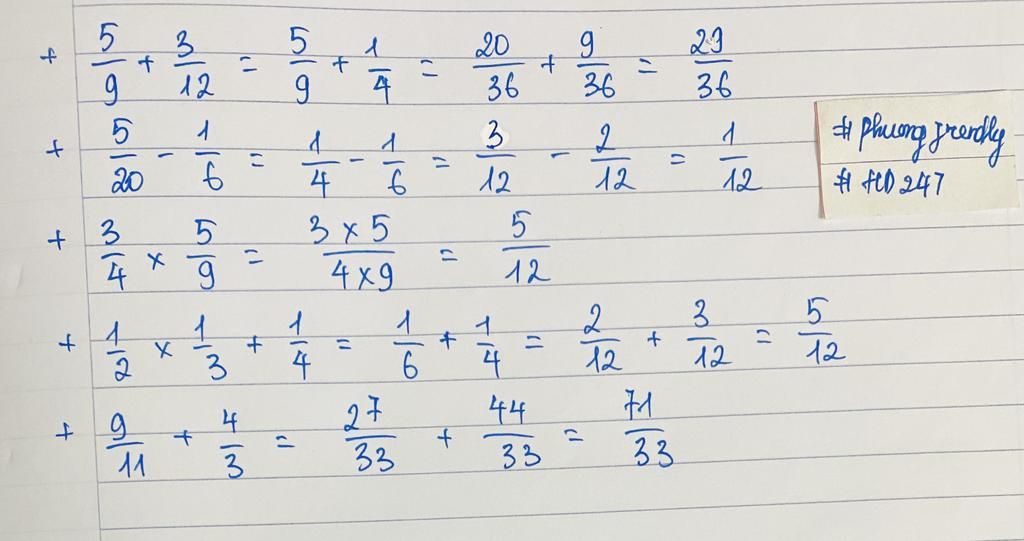 + 5/9 + 3/12 = 5/9 + 1/4 = 20/36 + 9/36 = 29/36
+ 5/20 - 1/6 = 1/4 - 1/6 = 3/12 - 2/12 = 1/12
# phuong
# HD 247
+ 3/4 × 5/9 = 3 × 5/4 × 9 = 5/12
+ 1/2 × 1/3 + 1/4 = 1/6 + 1/4 = 2/12 + 3/12 = 5/12
+ 9/11 + 4/3 = 27/33 + 44/33 = 71/33